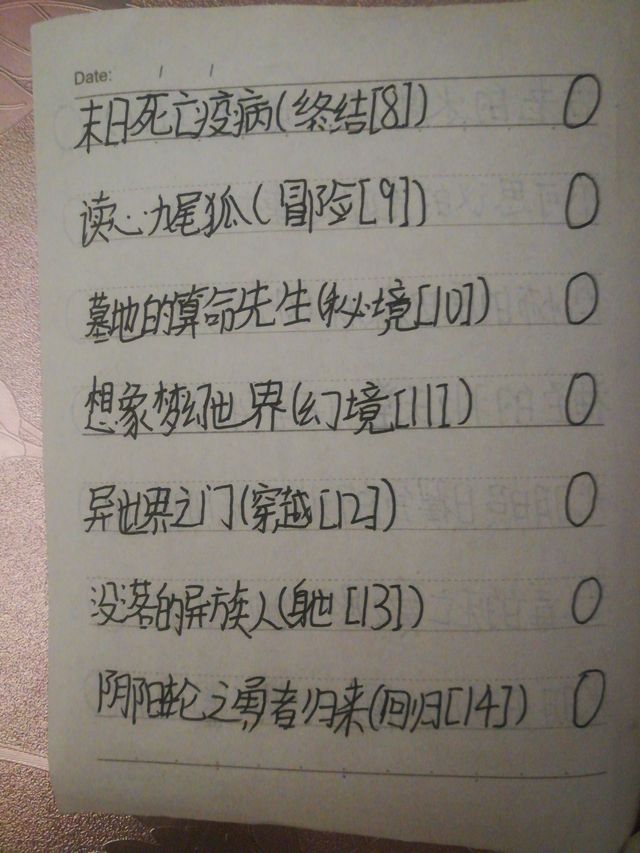 Date: / /
末日死亡疫病(终结[8]) 0
读心九尾狐(冒险[9]) 0
墓地的算命先生(秘境[10]) 0
想象梦幻世界(幻境[11]) 0
异世界之门(穿越[12]) 0
没落的异族人(身世[13]) 0
阴阳轮之勇者归来(回归[14]) 0